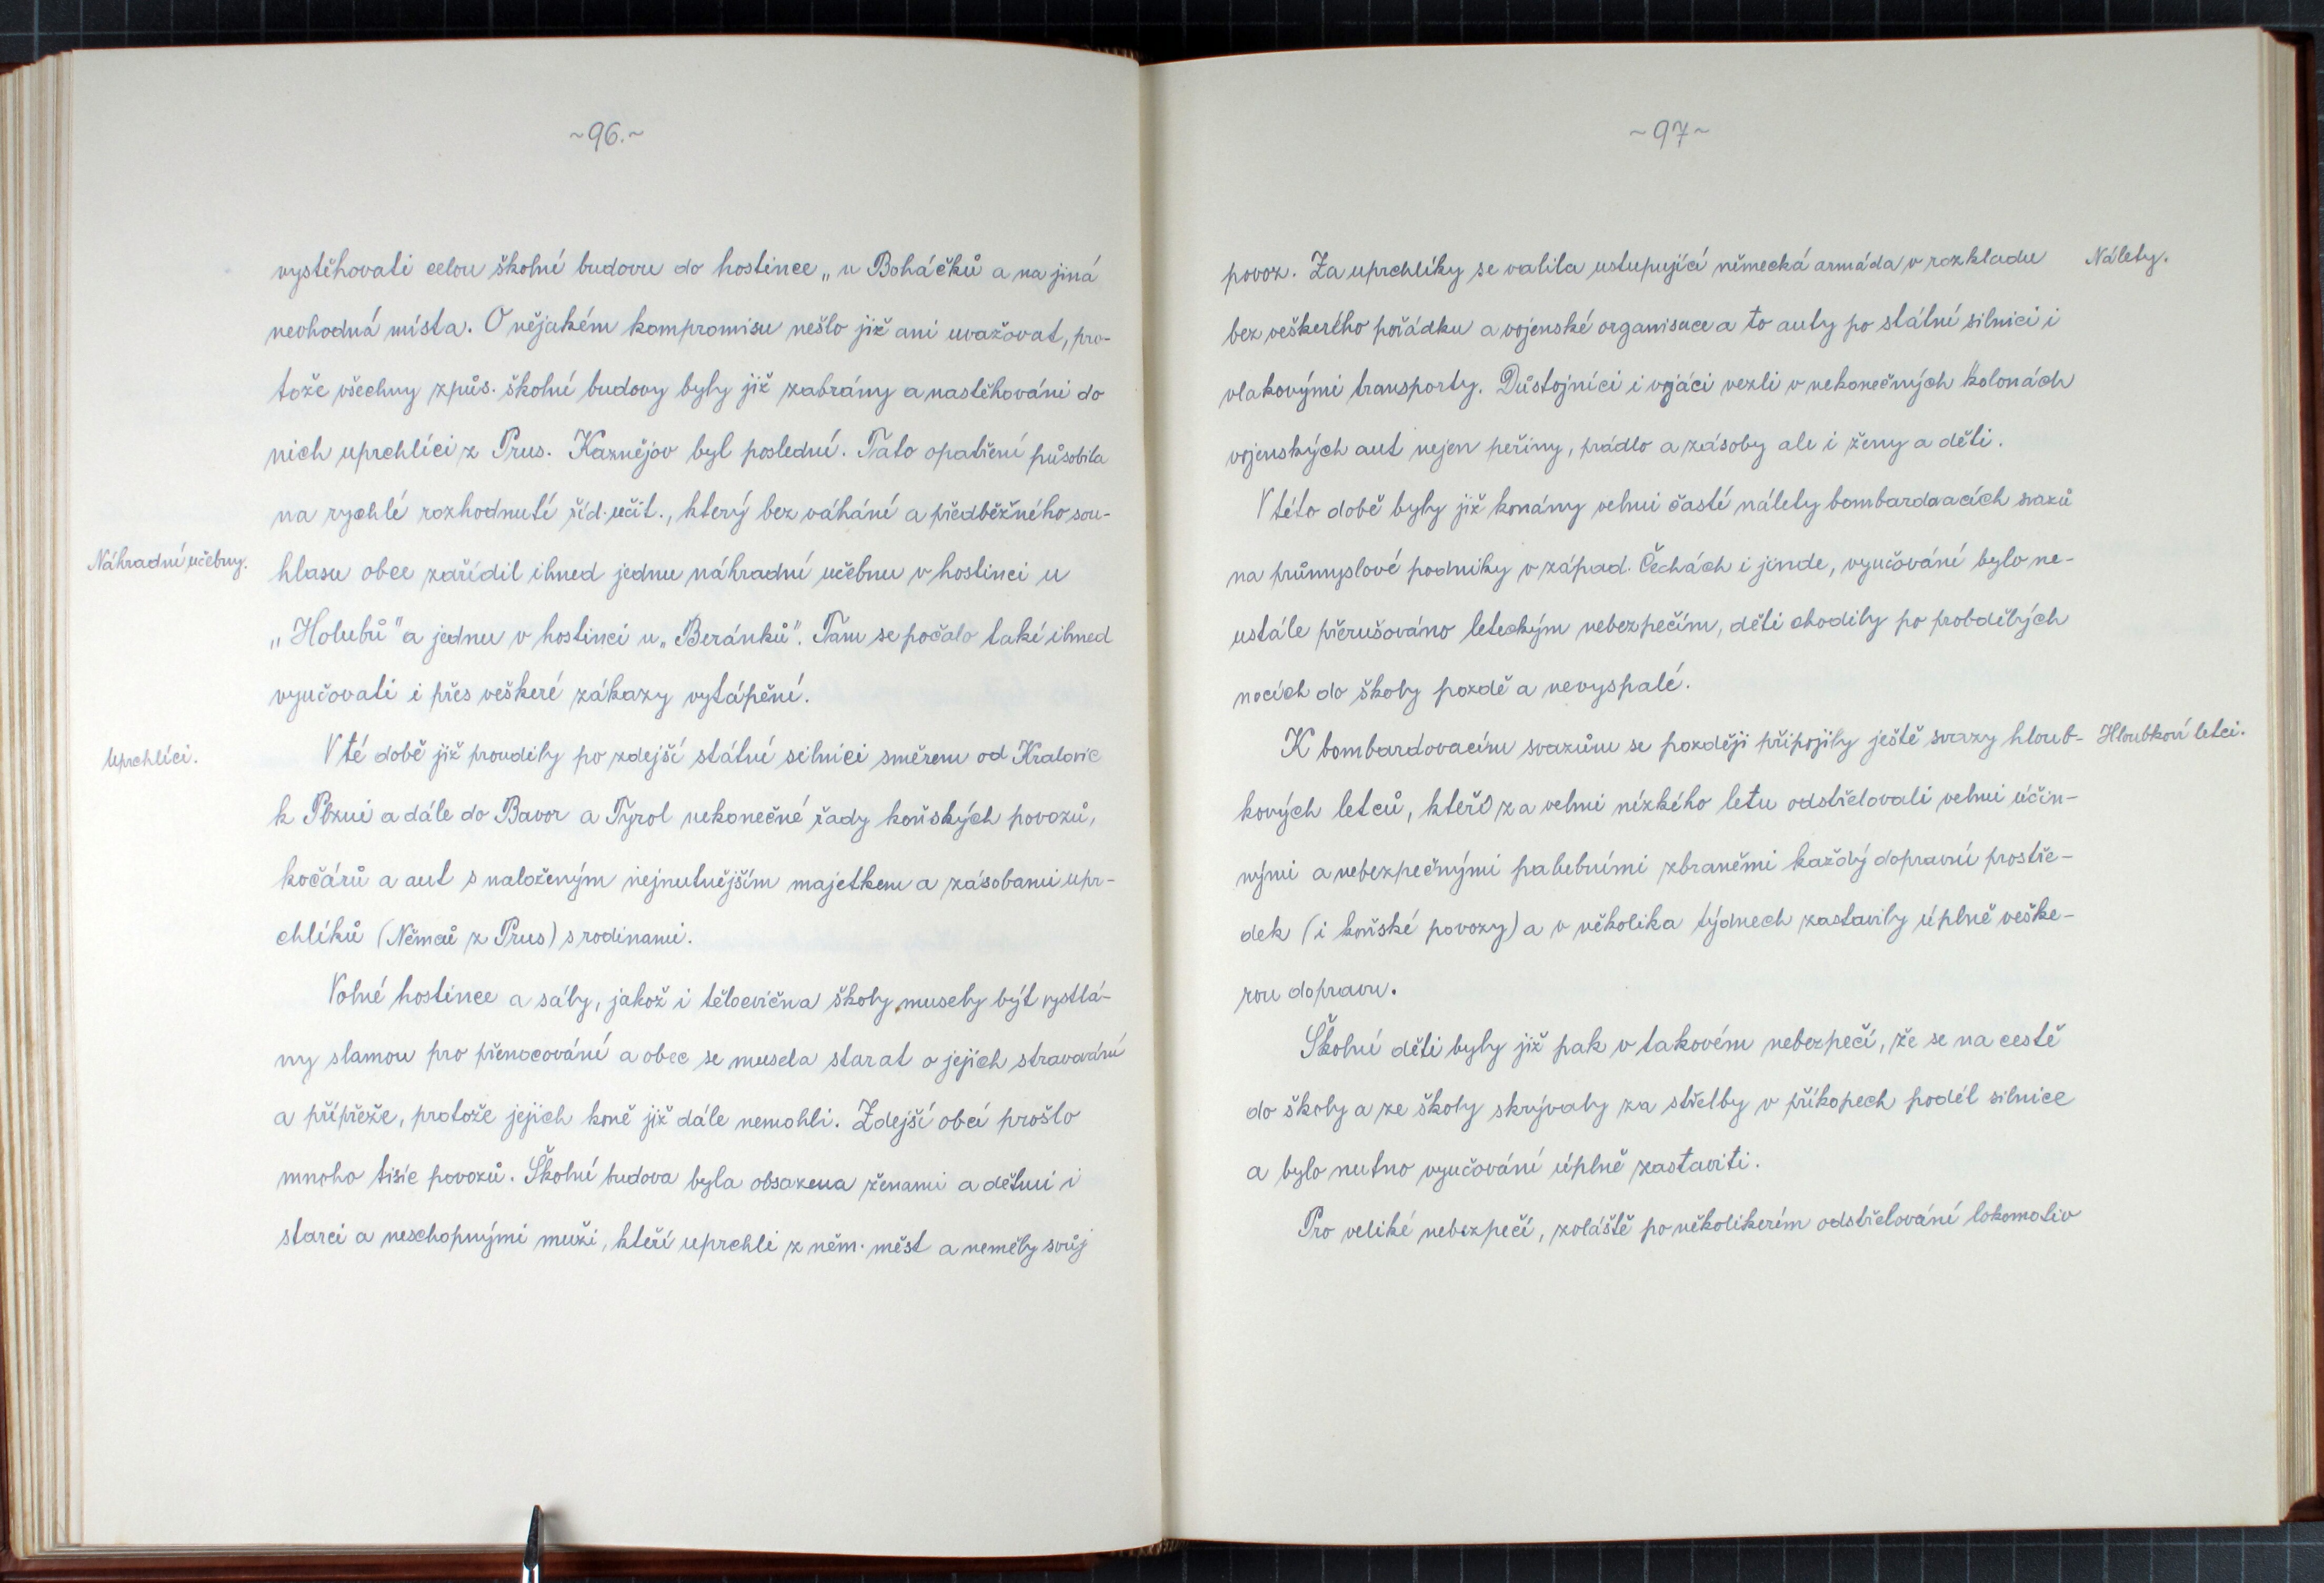 ~96.~
vystěhovati celou školní budovu do hostince „u Boháčků a na jiná
nevhodná místa. O nějakém kompromisu nešlo již ani uvažovat, pro-
tože všechny způs. školní budovy byly již zabrány a nastěhováni do
nich uprchlíci z Prus. Kaznějov byl poslední. Tato opatření působila
na rychlé rozhodnutí říd. učit., který bez váhání a předběžného sou-
Náhradní učebny.
hlasu obce zařídil ihned jednu náhradní učebnu v hostinci u
„Holubů" a jednu v hostinci u „Beránků". Tam se počalo také ihned
vyučovati i přes veškeré zákazy vytápění.
Uprchlíci.
V té době již proudily po zdejší státní silnici směrem od Kralovic
k Plzni a dále do Bavor a Tyrol nekonečné řady koňských povozů,
kočárů a aut s naloženým nejnutnějším majetkem a zásobami upr-
chlíků (Němců z Prus) s rodinami.
Volné hostince a sály, jakož i tělocvična školy musely být vystlá-
ny slamou pro přenocování a obec se musela starat o jejich stravování
a přípřeže, protože jejich koně již dále nemohli. Zdejší obcí prošlo
mnoho tisíc povozů. Školní budova byla obsazena ženami a dětmi i
starci a neschopnými muži, kteří uprchli z něm. měst a neměly svůj
~97~
povoz. Za uprchlíky se valila ustupující německá armáda v rozkladu
Nálety.
bez veškerého pořádku a vojenské organisace a to auty po státní silnici i
vlakovými transporty. Důstojníci i vojáci vezli v nekonečných kolonách
vojenských aut nejen peřiny, prádlo a zásoby ale i ženy a děti.
V této době byly již konány velmi časté nálety bombardoacích svazů
na průmyslové podniky v západ. Čechách i jinde, vyučování bylo ne-
ustále přerušováno leteckým nebezpečím, děti chodily po probdělých
nocích do školy pozdě a nevyspalé.
K bombardovacím svazům se později připojily ještě svazy hloub-
Hloubkoví letci.
kových letců, kteří za velmi nízkého letu odstřelovali velmi účin-
nými a nebezpečnými palebními zbraněmi každý dopravní prostře-
dek (i koňské povozy) a v několika týdnech zastavily úplně veške-
rou dopravu.
Školní děti byly již pak v takovém nebezpečí, že se na cestě
do školy a ze školy skrývaly za střelby v příkopech podél silnice
a bylo nutno vyučování úplně zastaviti.
Pro veliké nebezpečí, zvláště po několikerém odstřelování lokomotiv